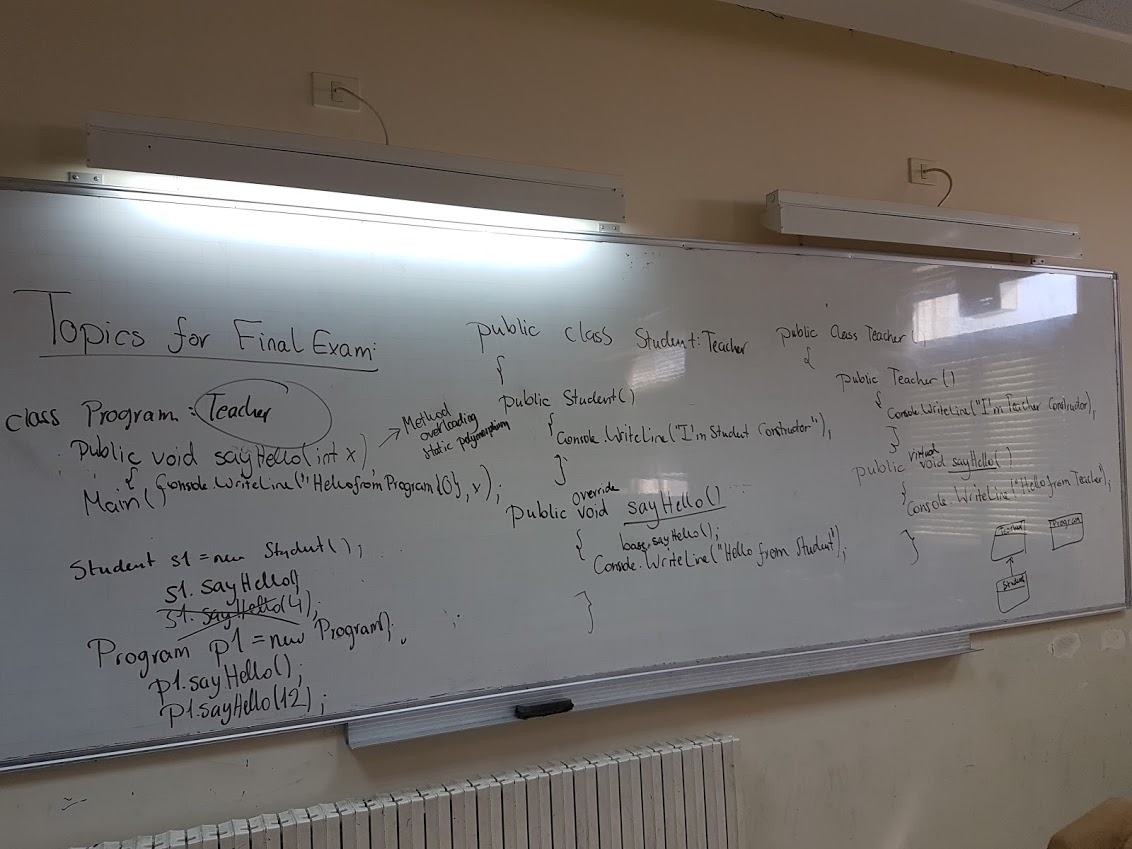 Topics for Final Exam:
class Program : Teacher
public void sayHello(int x)
{ Console.WriteLine("Hello from Program {0}, x);
Main()
Method
overloading
static polymorphism
Student s1 = new Student();
s1.sayHello()
s1.sayHello(4);
Program p1 = new Program();
p1.sayHello();
p1.sayHello(12);
public class Student:Teacher
{
public Student()
{ Console.WriteLine("I'm Student Constructor");
}
override
public void sayHello()
{ base.sayHello();
Console.WriteLine("Hello from Student");
}
}
public class Teacher
{
public Teacher()
{ Console.WriteLine("I'm Teacher Constructor);
}
virtual
public void sayHello()
{ Console.WriteLine("Hello from Teacher");
Teacher
Program
Student